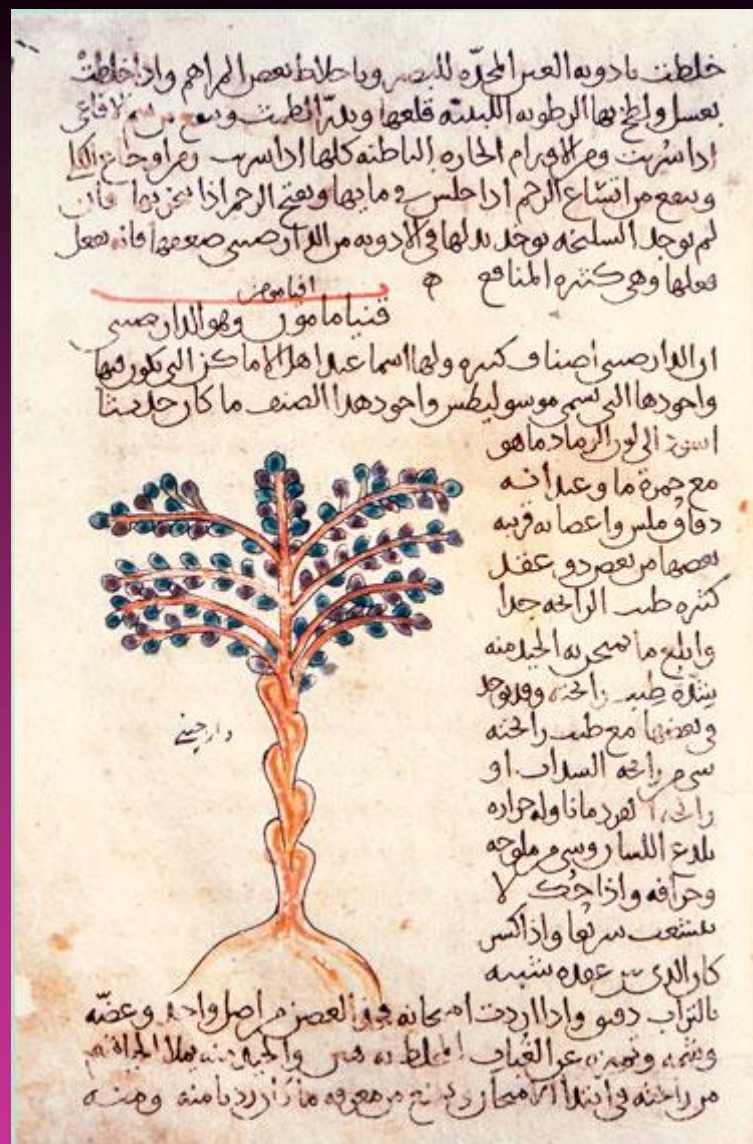 خلطت بادويه العين المحدّه للبصر وباخلاط بعض المراهم واذا خلطت
بعسل ولطخ بها الرطوبه اللبنيّه قلعها ويدرّ الطمث وينفع من سم الافاعى
اذا شربت ومن الاورام الحاره الباطنه كلها اذا شربت ومن اوجاع الكلا
وينفع من اتساع الرحم اذا جلس فى مايها ويفتح الرحم اذا بخر بها فان
لم يوجد السليخه يوجد بدلها فى الادويه من الدارصينى ضعفها فانه يفعل
فعلها وهى كثيره المنافع
قنيامامون وهو الدارصينى
ان الدارصينى اصناف كثيره ولها اسما عند اهل الاماكن التى يكون فيها
واجودها التى تسمى موسوليطس واجود هذا الصنف ما كان حديثا
اسود الى لون الرماد ما هو
مع حمرة ما وعيدانه
دقاق ملس واغصانه قريبه
بعضها من بعض ذو عقد
كثيره طيب الرائحه جدا
وابلغ ما يمتحن به الجيد منه
بشدّة طيب رائحته وقد يوجد
فى بعضها مع طيب رائحته
شى من رائحه السداب او
رائحه القردمانا وله حراره
يلدع اللسان وشى من ملوحه
وحرافه واذا حُكّ لا
يتشعب سريعا واذا كسر
كان الذى بين عقده شبيه
دارچینی
بالتراب دقيق واذا اردت امتحانه فخذ الغصن من اصل واحد
من رائحته فى ابتدا الامتحان ويمنع من معرفه ما كان ردياً منه ومنه